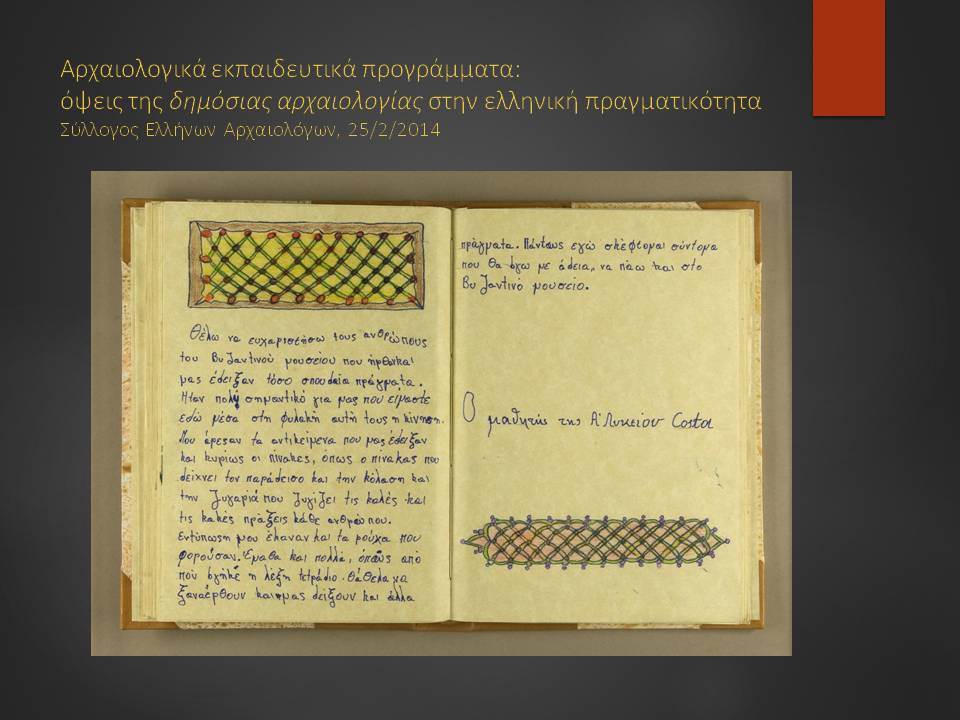 Αρχαιολογικά εκπαιδευτικά προγράμματα:
όψεις της δημόσιας αρχαιολογίας στην ελληνική πραγματικότητα
Σύλλογος Ελλήνων Αρχαιολόγων, 25/2/2014
Θέλω να ευχαριστήσω τους ανθρώπους
του Βυζαντινού μουσείου που ήρθαν και
μας έδειξαν τόσο σπουδαία πράγματα.
Ήταν πολύ σημαντικό για μας που είμαστε
εδώ μέσα στη φυλακή αυτή τους η κίνηση.
Μου άρεσαν τα αντικείμενα που μας έδειξαν
και κυρίως οι πίνακες, όπως ο πίνακας που
δείχνει τον παράδεισο και την κόλαση και
την ζυγαριά που ζυγίζει τις καλές και
τις κακές πράξεις κάθε ανθρώπου.
Εντύπωση μου έκαναν και τα ρούχα που
φορούσαν. Έμαθα και πολλά, όπως από
πού βγήκε η λέξη τετράδιο. Θάθελα να
ξαναέρθουν και να μας δείξουν και άλλα
πράγματα. Πάντως εγώ σκέφτομαι σύντομα
που θα βγω με άδεια, να πάω και στο
Βυζαντινό μουσείο.
Ο μαθητής της Α' Λυκείου Costa